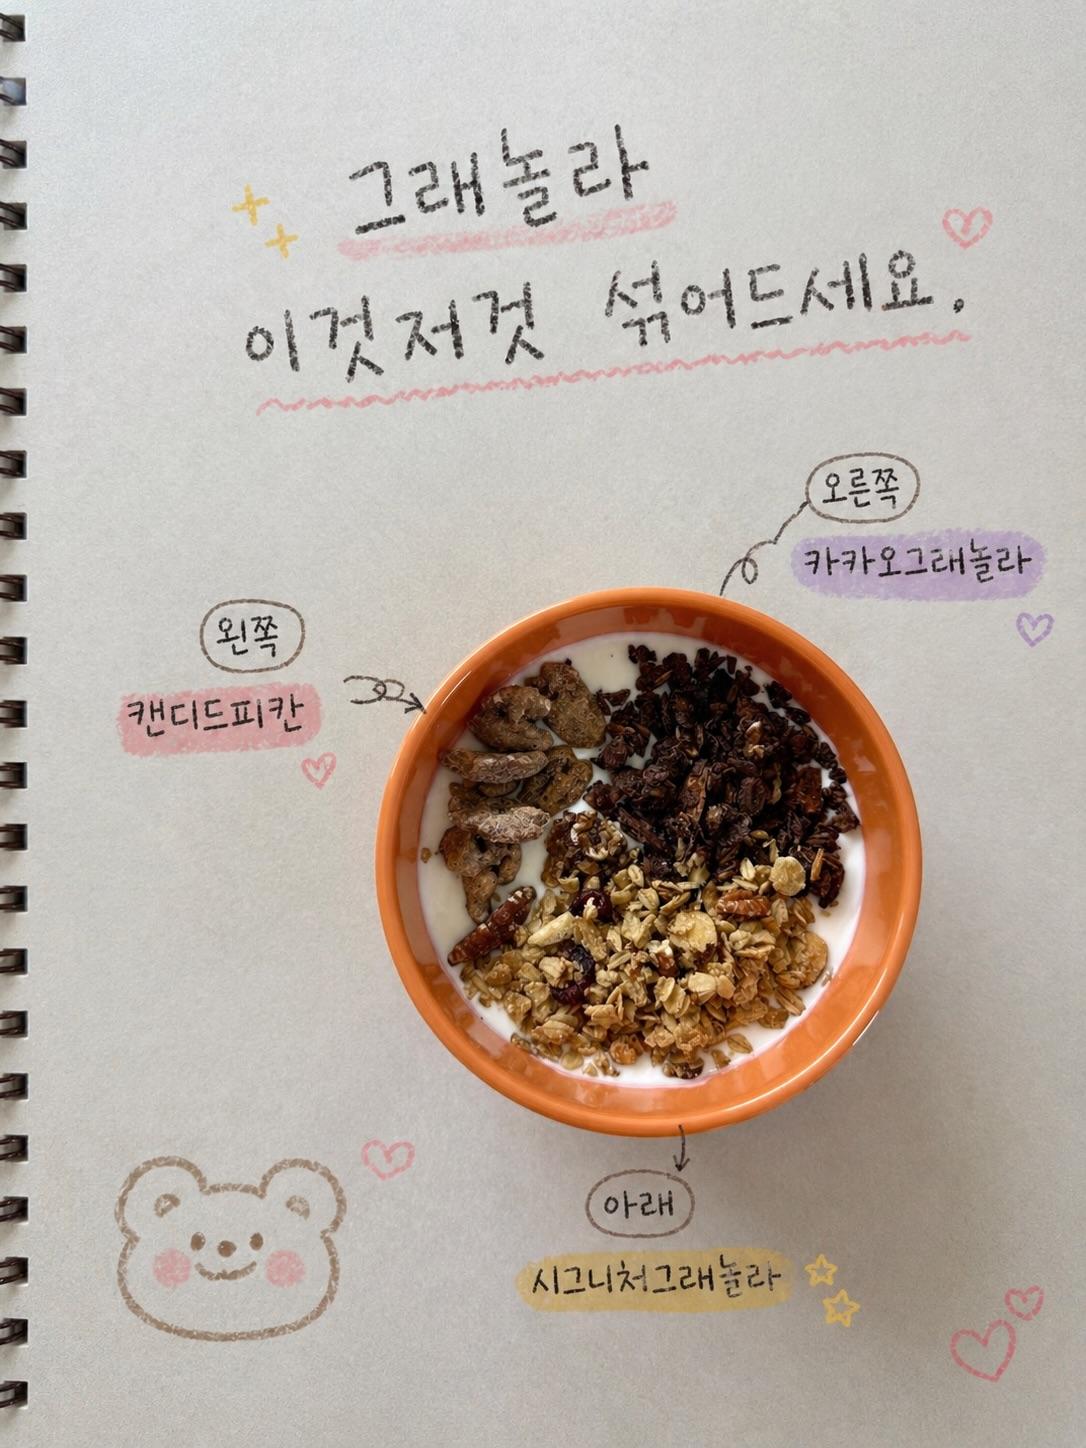 그래놀라
이것저것 섞어드세요.
오른쪽
카카오그래놀라
왼쪽
캔디드피칸
아래
시그니처그래놀라